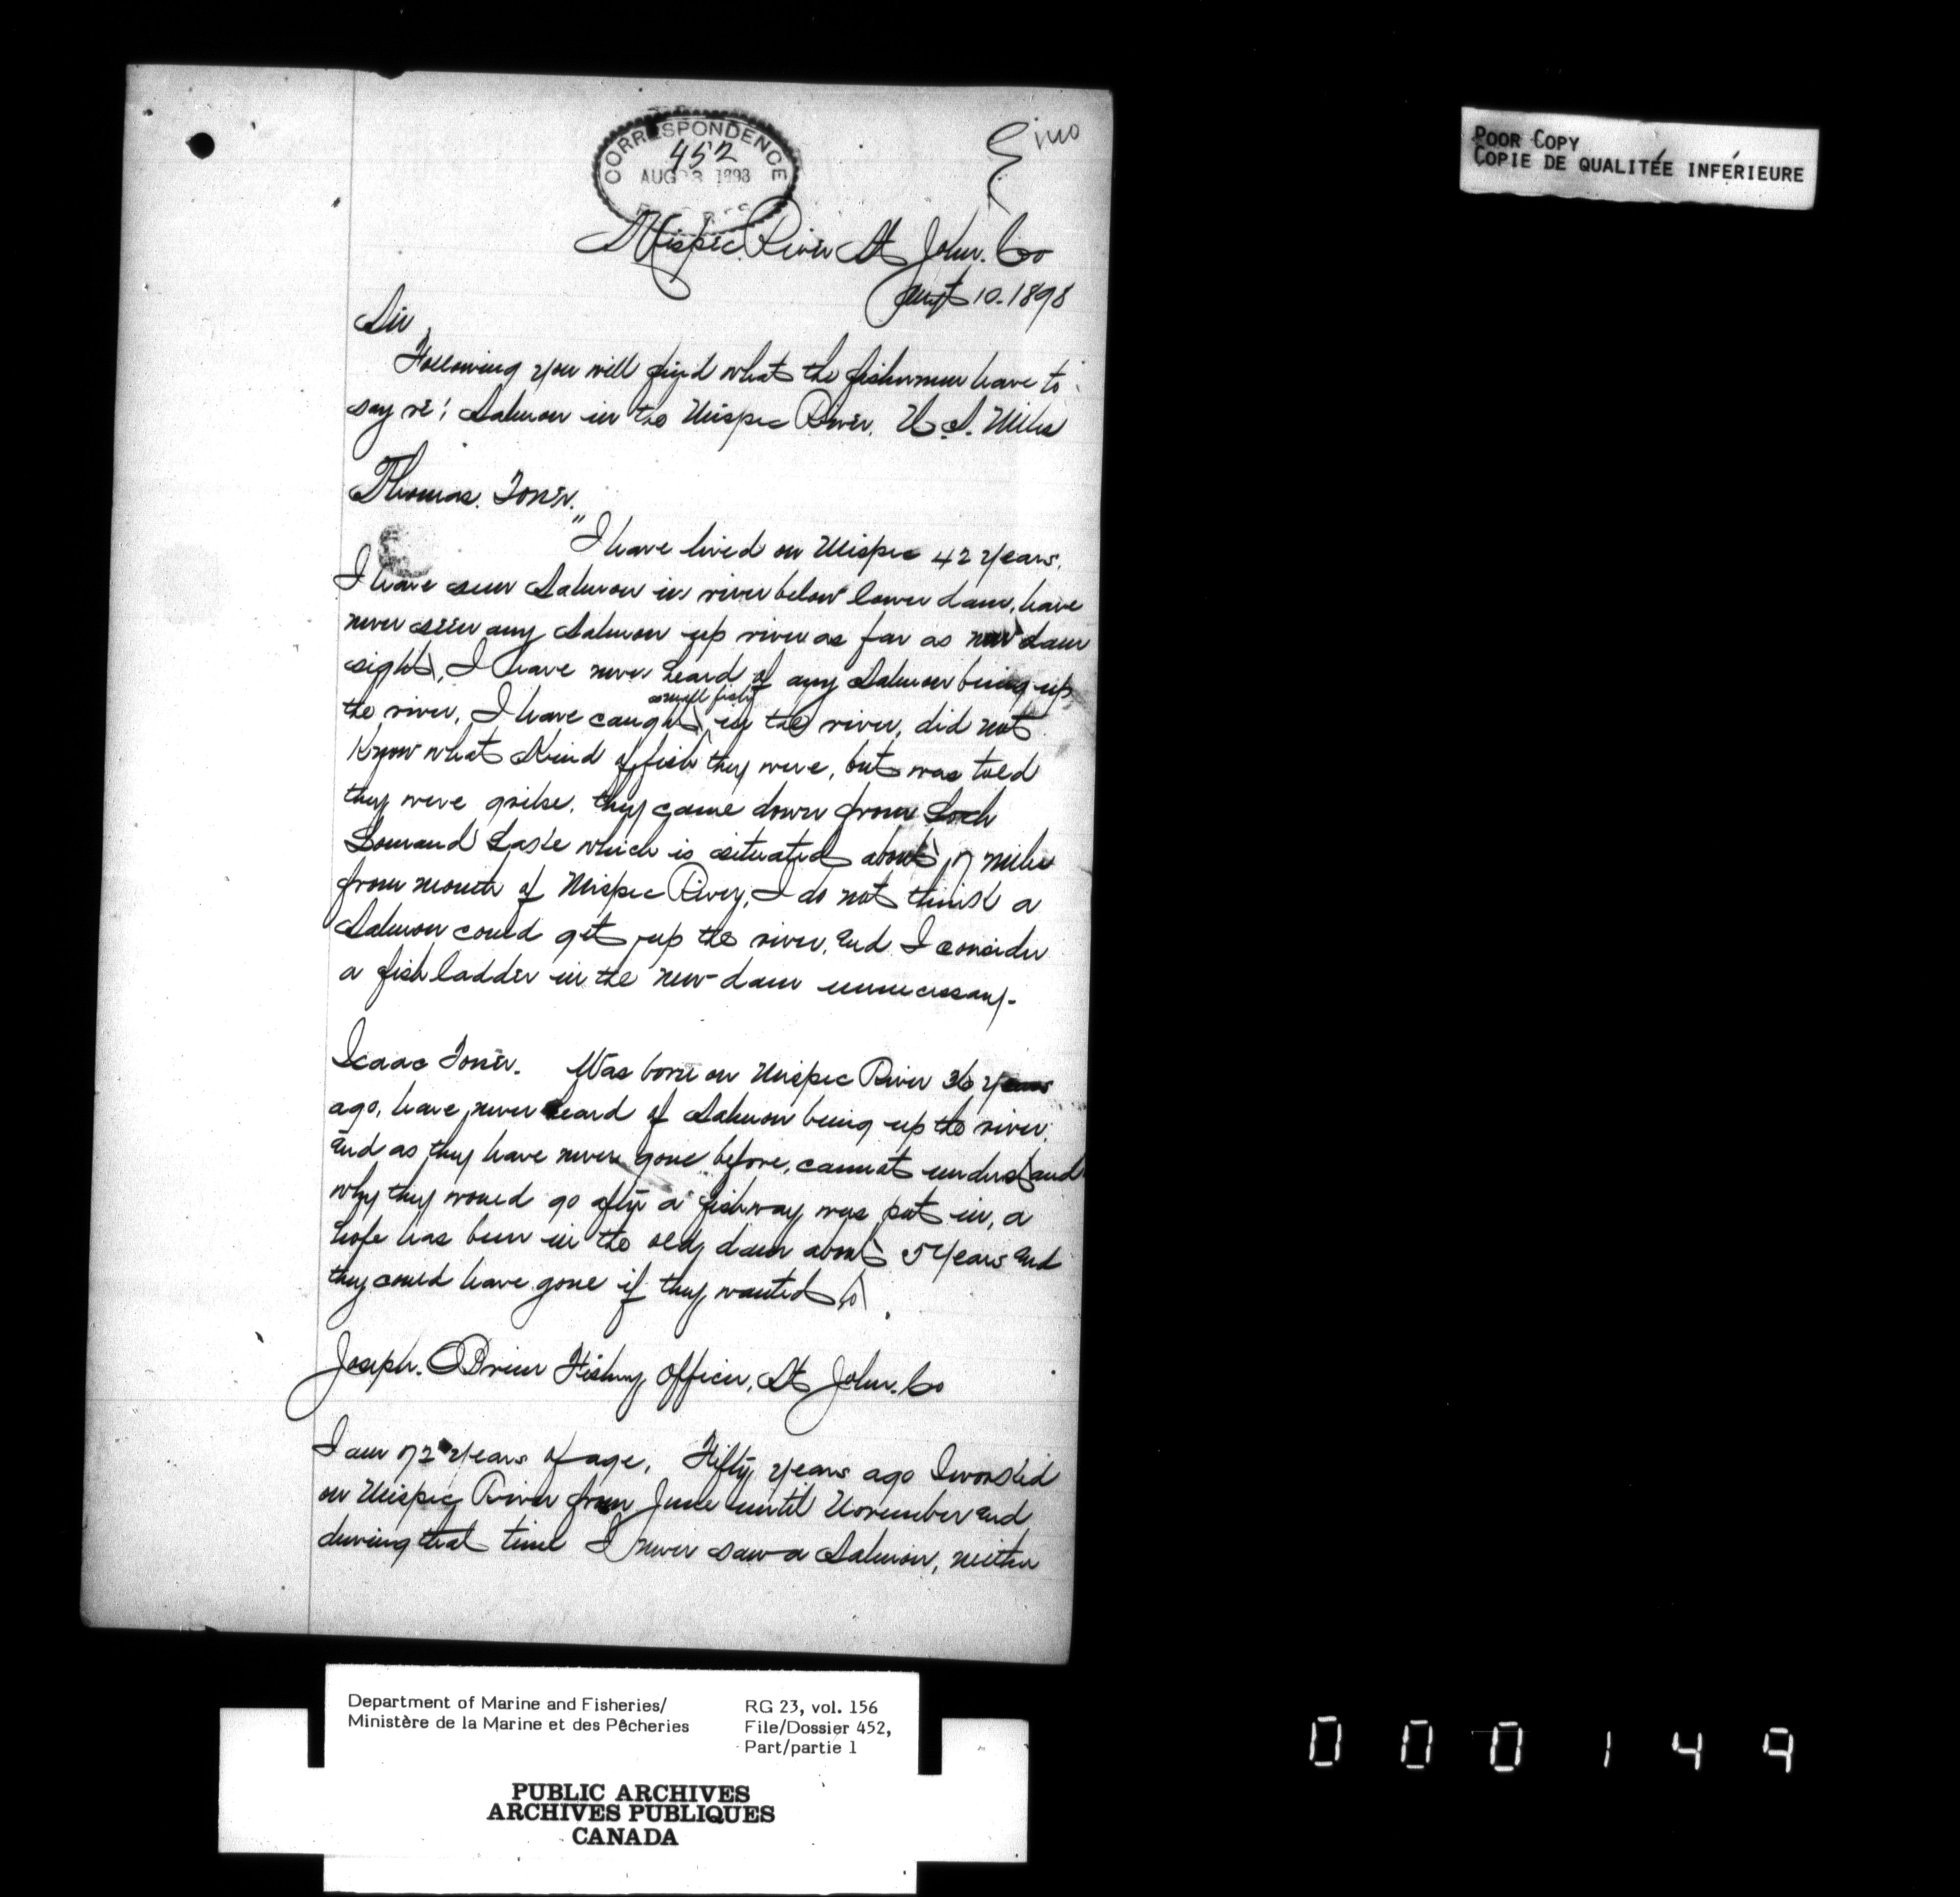 CORRESPONDENCE
452
AUG 23 1898
Mispec River St John. Co
Augt 10. 1898
Sir,
Following you will find what the fishermen have to
say re: Salmon in the Mispec River.
Thomas. Toner.
"I have lived on Mispec 42 years.
I have seen Salmon in river below lower dam, have
never seen any Salmon up river as far as new dam
sight, I have never heard of any Salmon being up
the river, I have caught small fish in the river, did not
Know what Kind of fish they were, but was told
they were grilse. they came down from Loch
Lomand Lake which is situated about 7 miles
from mouth of Mispec River, I do not think a
Salmon could get up the river, and I consider
a fish ladder in the new dam unnecessary.
Isaac Toner. Was born on Mispec River 36 years
ago, have never heard of Salmon being up the river,
and as they have never gone before, cannot understand
why they would go after a fishway was put in, a
hole has been in the old dam about 5 years and
they could have gone if they wanted to.
Joseph. O'Brien Fishery Officer, St John. Co
I am 72 years of age. Fifty years ago I worked
on Mispec River from June until November and
during that time I never saw a Salmon, neither
POOR COPY
COPIE DE QUALITÉE INFÉRIEURE
Department of Marine and Fisheries/
Ministère de la Marine et des Pêcheries
RG 23, vol. 156
File/Dossier 452,
Part/partie 1
PUBLIC ARCHIVES
ARCHIVES PUBLIQUES
CANADA
000149